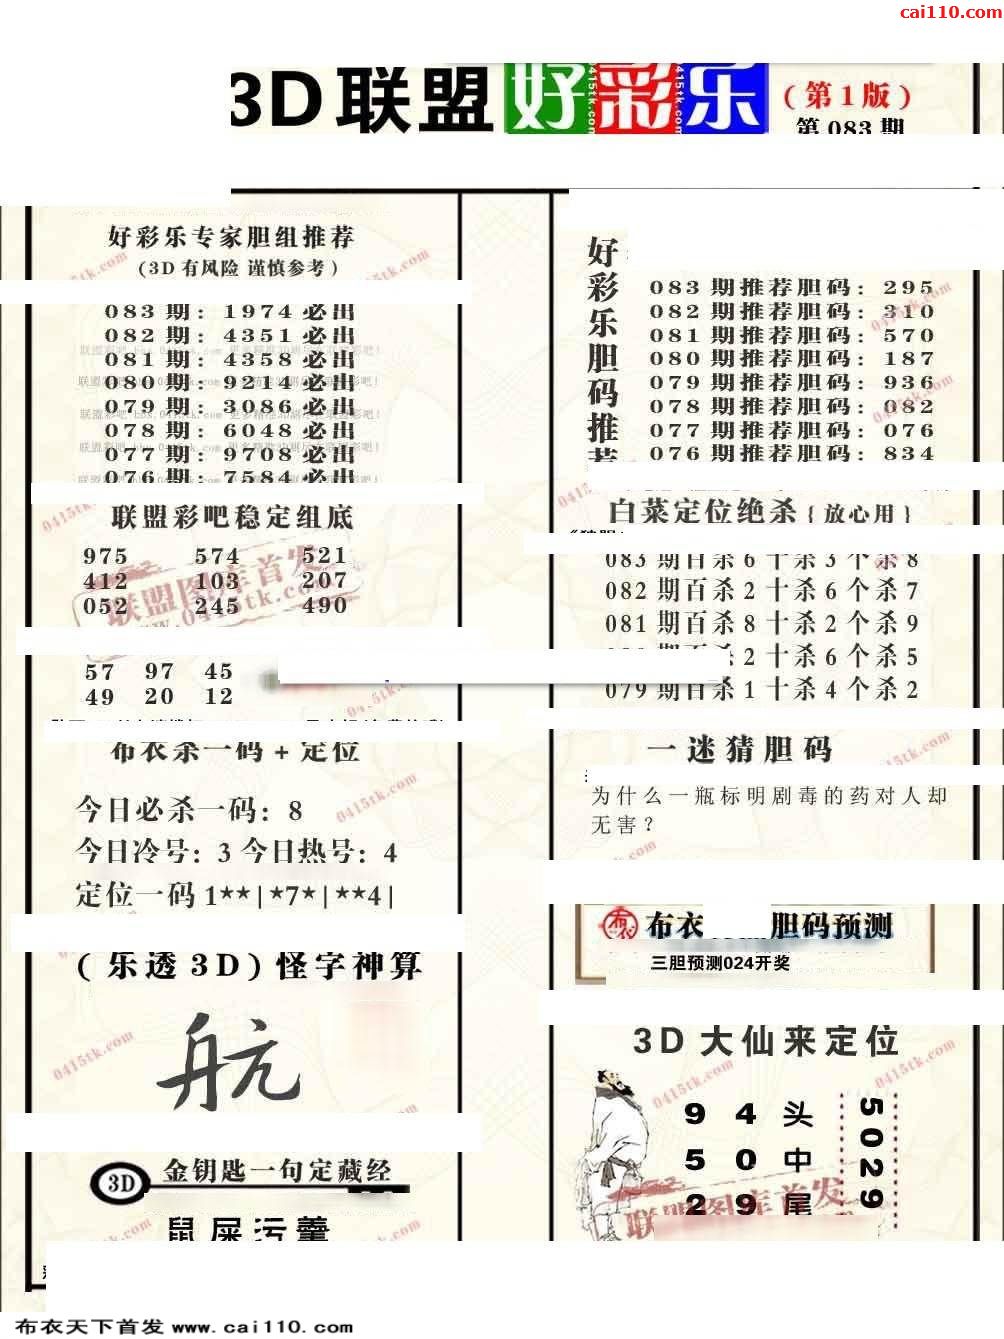 cai110.com
3D联盟 好彩乐 (第1版)
第083期
好彩乐专家胆组推荐
(3D有风险 谨慎参考)
083期: 1974必出
082期: 4351必出
081期: 4358必出
080期: 9214必出
079期: 3086必出
078期: 6048必出
077期: 9708必出
076期: 7584必出
联盟彩吧稳定组底
975 574 521
412 103 207
052 245 490
57 97 45
49 20 12
布衣杀一码+定位
今日必杀一码: 8
今日冷号: 3 今日热号: 4
定位一码1**|*7*|**4|
(乐透3D)怪字神算
3D 金钥匙一句定藏经
鼠屎污羹
好彩乐胆码推荐
083期推荐胆码: 295
082期推荐胆码: 310
081期推荐胆码: 570
080期推荐胆码: 187
079期推荐胆码: 936
078期推荐胆码: 082
077期推荐胆码: 076
076期推荐胆码: 834
白菜定位绝杀{放心用}
083期百杀6十杀3个杀8
082期百杀2十杀6个杀7
081期百杀8十杀2个杀9
2十杀6个杀5
079期百杀1十杀4个杀2
一迷猜胆码
为什么一瓶标明剧毒的药对人却
无害?
布衣 胆码预测
三胆预测024开奖
3D大仙来定位
9 4头
5 0中
2 9尾
5029
联盟图库首发
0415tk.com
布衣天下首发 www.cai110.com